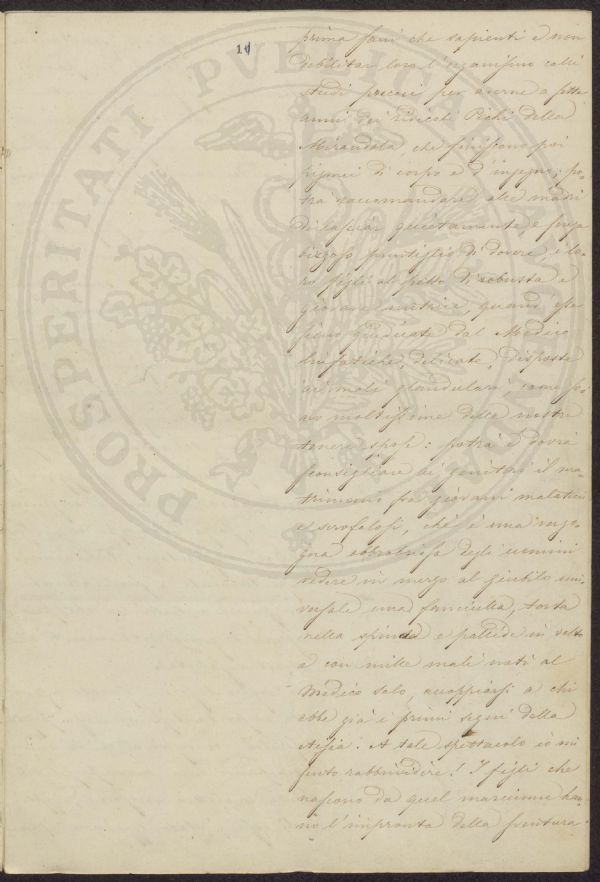 11
PROSPERITATI PUBLICAE
prima sani che sapienti e non
debilitar loro l'organismo colli
studi precoci per averne a sette
anni dei ridicoli Pichi della
Mirandola, che finiscono poi
pigmei di corpo e d'ingegno; po-
trà raccomandare alle madri
di lasciar quietamente, e senza
bizzoso puntiglio di dovere i lo-
ro figli al petto di robusta e
giovane nutrice quando esse
sieno giudicate dal Medico
linfatiche, delicate, disposte
ai mali glandulari, come so-
no moltissime delle nostre
tenere spose: potrà e dovrà
sconsigliare ai genitori il ma-
trimonio fra giovani malaticci
e scrofolosi, chè è una vergo-
gna obbrobriosa degli uomini
vedere in mezzo al giubilo uni-
versale una fanciulla, torta
nella spina e pallida in volto
e con mille mali noti al
Medico solo, accoppiarsi a chi
ebbe già i primi segni della
tisia! A tale spettacolo io mi
sento rabbrividire! I figli che
nascono da quel marciume han-
no l'impronta della sventura